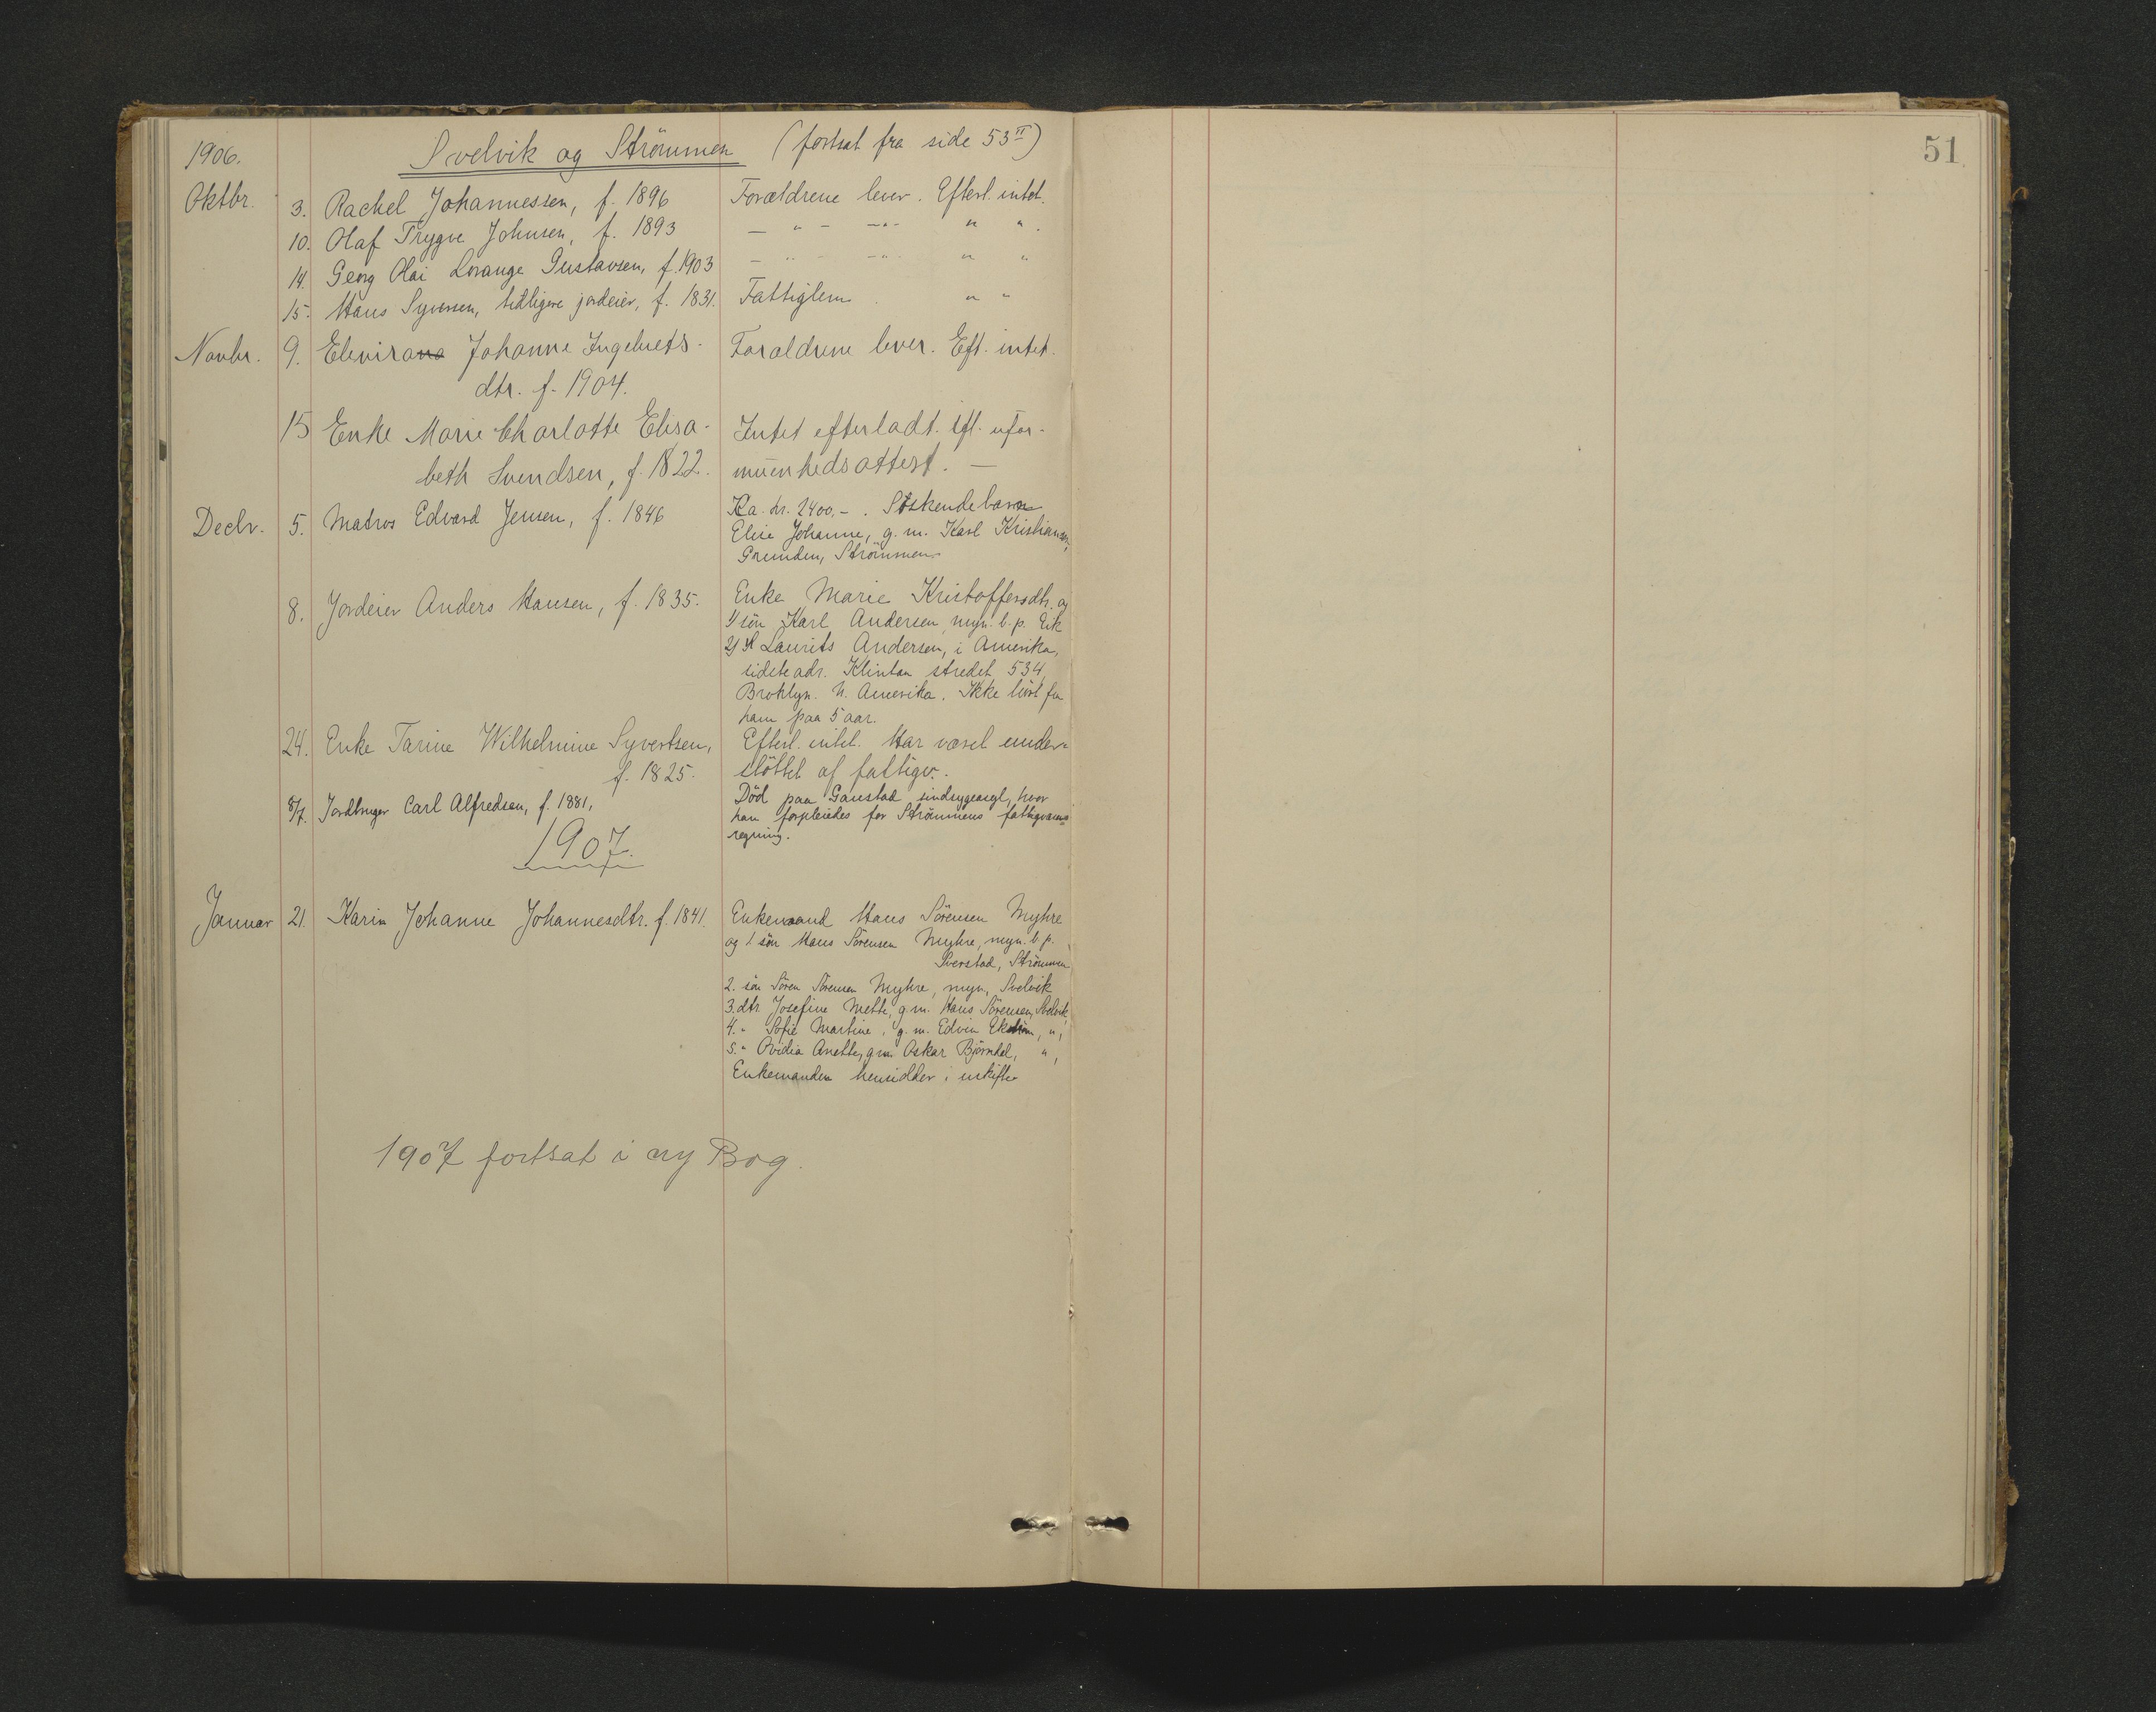 1906. Svelvik og Strömmen (fortsat fra side 53 II)
51
Oktbr. 3. Rachel Johannessen, f. 1896 Forældrene lever. Efterl. intet.
10. Olaf Trygve Johnsen, f. 1893 — " - —"- " " .
14. Georg Olai Lorange Gustavsen, f. 1903 — " - —"- " "
15. Hans Syversen, tidligere jordeier, f. 1831. Fattiglem. " "
Novbr. 9. Elevira Johanne Ingebrets- Forældrene lever. Eft. intet.
dtr. f. 1904.
15 Enke Marie Charlotte Elisa- Intet efterladt. ifl. ufor-
beth Svendsen, f. 1822. muenhedsattest. —
Decbr. 5. Matros Edvard Jensen, f. 1846 Ka. kr. 2400.-. Söskendebarn
Elise Johanne, g. m. Karl Kristiansen,
Grunden, Strömmen
8. Jordeier Anders Hansen, f. 1835. Enke Marie Kristoffersdtr. og
1/ sön Karl Andersen, myn. b. p. Eik
2/ Laurits Andersen, i Amerika,
sidste adr. Klinton stredet 534,
Broklyn. N. Amerika. Ikke hört fra
ham paa 5 aar.
24. Enke Tarine Wilhelmine Syvertsen, Efterl. intet. Har været under-
f. 1825. stöttet af fattigv.
8/7. Jordbruger Carl Alfredsen, f. 1881, Död paa Gaustad sindsygeasyl, hvor
han forpleiedes for Strömmens fattigvæsens
regning.
1907.
Januar 21. Karin Johanne Johannesdtr. f. 1841. Enkemand Hans Sörensen Myhre
og 1. sön Hans Sörensen Myhre, myn. b. p.
Sverstad, Strömmen
2. sön Sören Sörensen Myhre, myn, Svelvik
3. dtr. Josefine Mette, g. m. Hans Sörensen, Svelvik,
4. " Sofie Martine, g. m. Edvin Ekström, ",
5. " Ovidia Anette, g m. Oskar Björndal, ",
Enkemanden hensidder i uskifte
1907 fortsat i ny Bog.